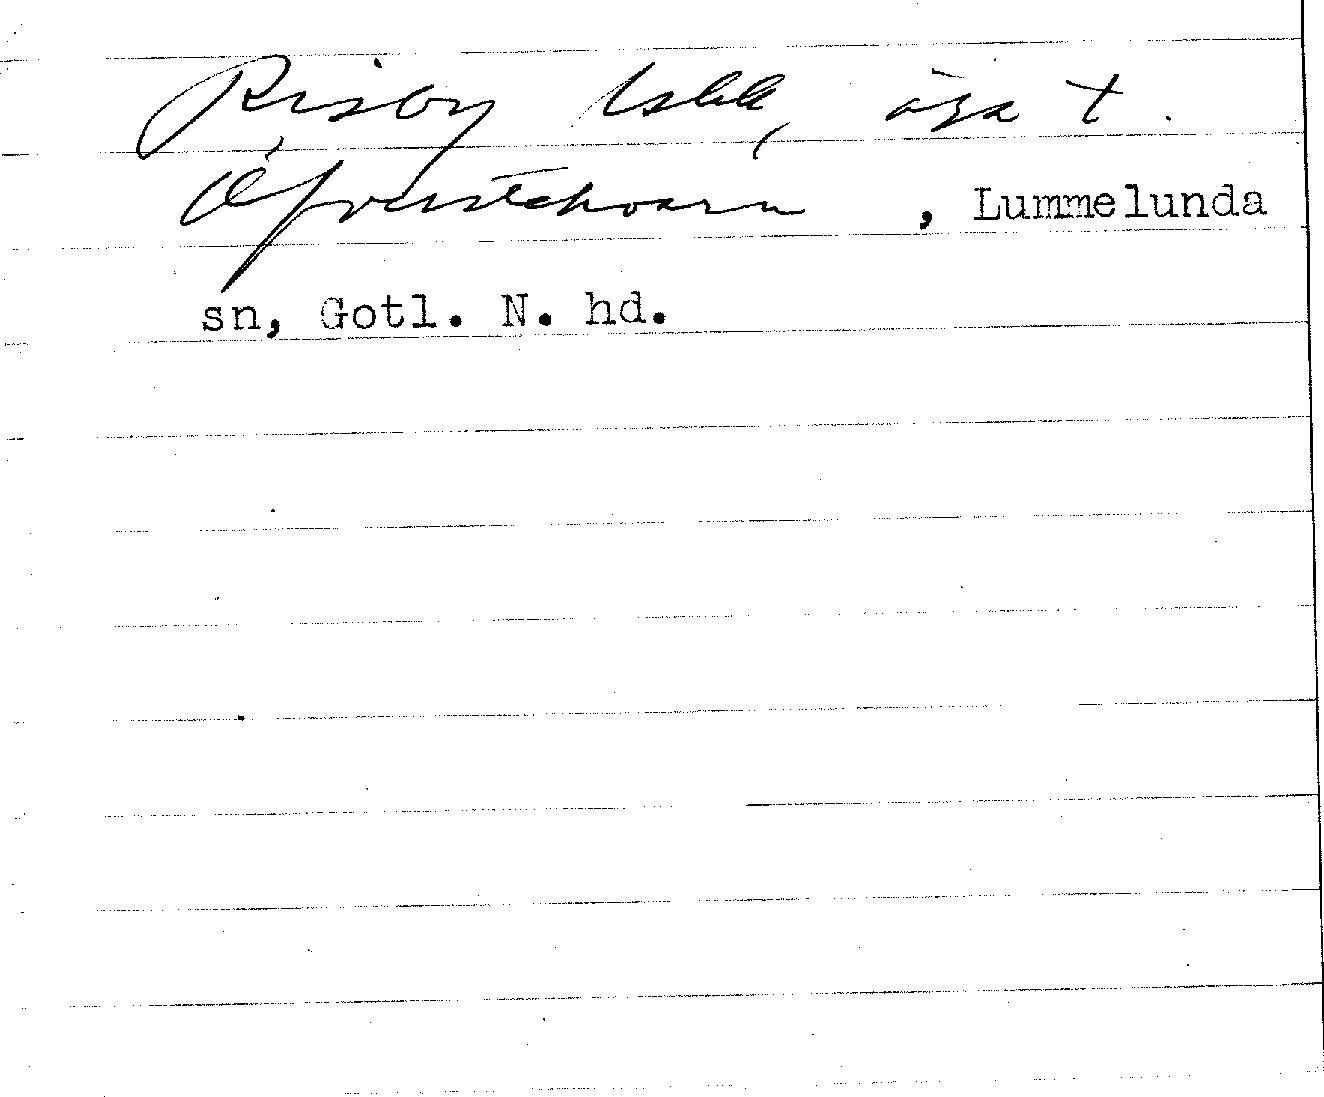 Risby 1sbb, äga t.
Öfverstekvarn, Lummelunda
sn, Gotl. N. hd.